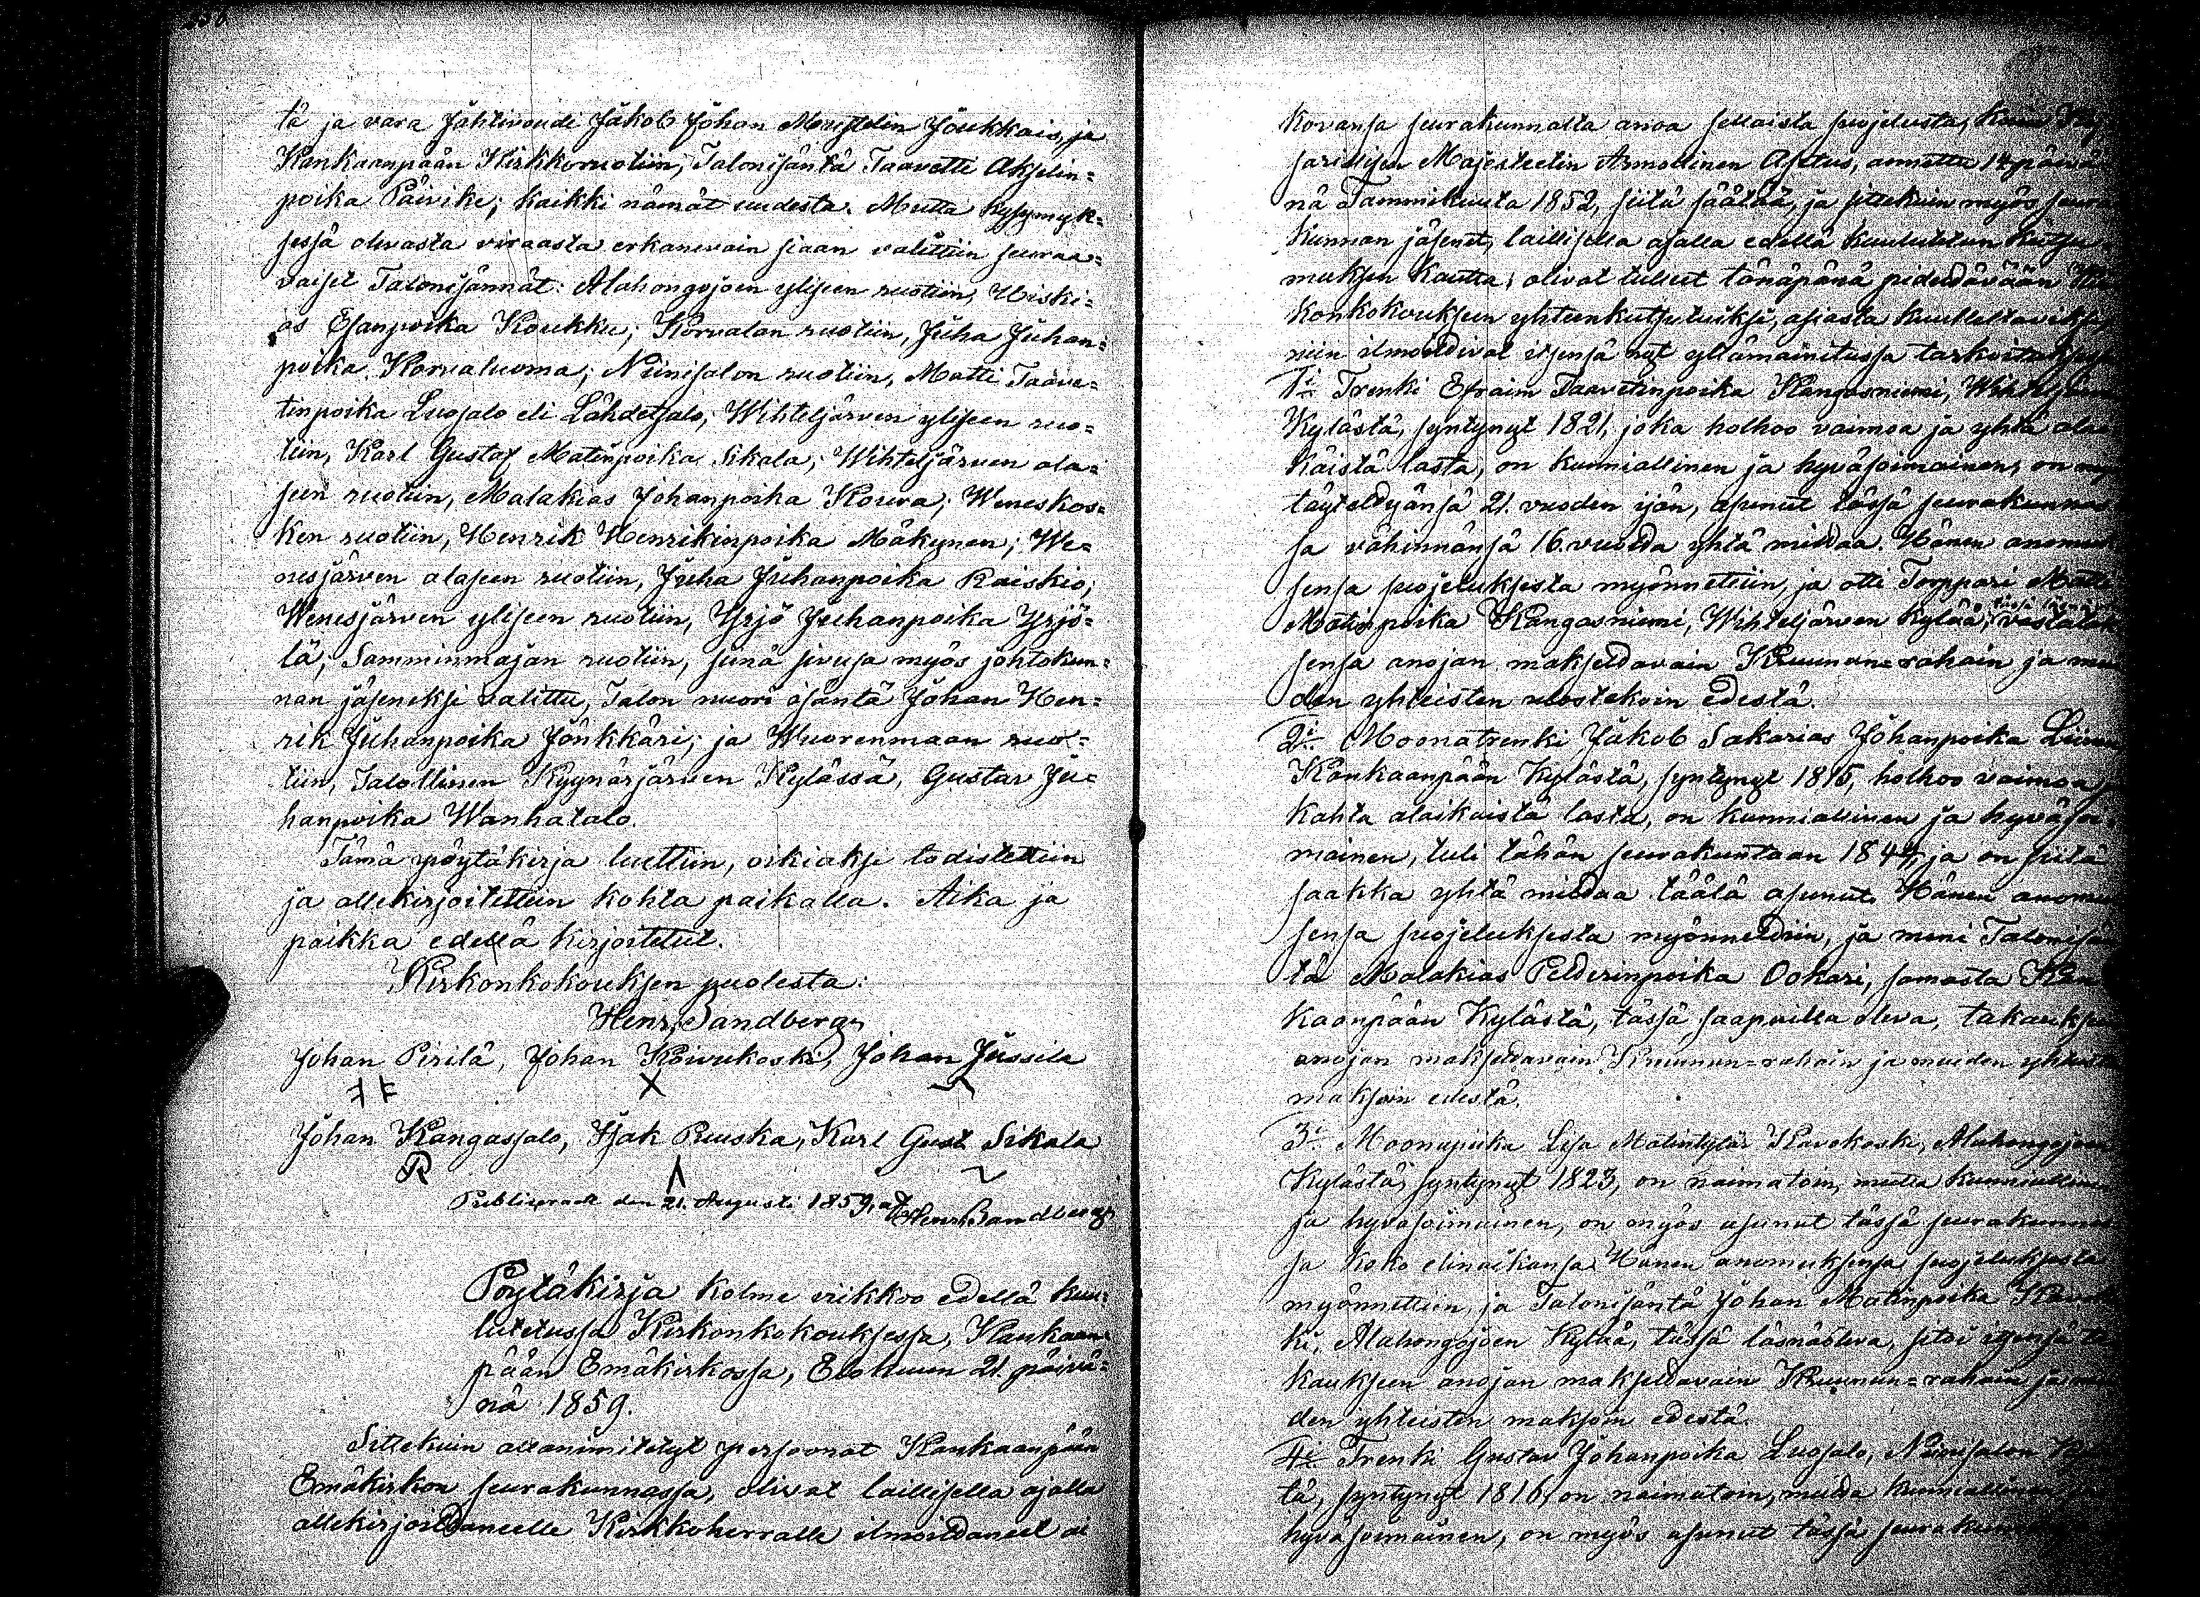 tä ja vara Jahtivoudi Jakob Johan Jöukkais, ja
Kankaanpään Kirkkoruotiin, Talonisäntä Taavetti Akselin=
poika Päivike; kaikki nämät uudesta. Mutta kysymyk=
sessä olevasta virasta erkanevain siaan valittiin seuraa=
vaiset Talonisännät: Alahongojoen yliseen ruotiin, Hiski=
as Esanpoika Koukku; Korvalan ruotiin, Juha Juhan=
poika Korvaluoma; Niinisalon ruotiin, Matti Taave=
tinpoika Luosalo eli Lähdesalo; Wihteljärven yliseen ruo=
tiin, Karl Gustaf Matinpoika Sikala; Wihteljärven ala=
seen ruotiin, Malakias Johanpoika Kouva; Weneskos=
ken ruotiin, Henrik Henrikinpoika Mäkynen; We=
nesjärven alaseen ruotiin, Juha Juhanpoika Raiskio;
Wenesjärven yliseen ruotiin, Yrjö Juhanpoika Yrjö=
lä; Samminmajan ruotiin, sinä sivusa myös johtokun=
nan jäseneksi valittu, Talon nuori isäntä Johan Hen=
rik Juhanpoika Jönkkäri; ja Wuorenmaan ruo=
tiin, Talollinen Kyynärjärven Kylässä, Gustav Ju=
hanpoika Wanhatalo.
Tämä pöytäkirja luettiin, oikiaksi todistettiin
ja allekirjoitettiin kohta paikalla. Aika ja
paikka edellä kirjoitetut.
Kirkonkokouksen puolesta:
Henr. Sandberg
Johan Pirilä, Johan Koivukoski, Johan Jussila
Johan Kangasalo, Isak Ruuska, Karl Gust Sikala
Publiceradt den 21. Augusti 1859, af Henr. Sandberg
Pöytäkirja kolme viikkoo edellä kuu=
lutetussa Kirkonkokouksessa, Kankaan=
pään Emäkirkossa, Elokuun 21. päivä=
nä 1859.
Sittekuin allanimitetyt persoonat Kankaanpään
Emäkirkon seurakunnassa, olivat laillisella ajalla
allekirjoittaneelle Kirkkoherralle ilmoittaneet ai
kovansa seurakunnalta anoa sellaista suojelusta, kuin
sarillisen Majesteetin Armollinen Asetus, annettu 14 päivä
nä Tammikuuta 1852, siitä säätää, ja sittekuin myös seura
kunnan jäsenet, laillisella ajalla edellä kuulutetun kutsu
muksen kautta, olivat tulleet tänäpänä pidettävään
konkokoukseen yhteenkutsutuiksi, asiasta kuulteltaviksi,
niin ilmoittivat itsensä nyt yllämainitussa tarkoituksessa
1:x Trenki Efraim Taavetinpoika Kangasniemi, Wihteljärven
Kylästä, syntynyt 1821, joka holhoo vaimoa ja yhtä alai
käistä lasta, on kunniallinen ja hyväsoimainen, on
täytettyänsä 21. vuoden ijän, asunut tässä seurakunna
sa vähinnänsä 16. vuotta yhtä mittaa. Hänen anomu
sensa suojeluksesta myönnettiin, ja otti Torppari Matti
Matinpoika Kangasniemi, Wihteljärven Kylää, vastatak
sensa anojan maksettavain Kruunun=rahain ja mui
den yhteisten ulostekoin edestä.
2:x Moonatrenki Jakob Sakarias Johanpoika
Kankaanpään Kylästä, syntynyt 1815, holhoo vaimoa ja
kahta alaikäistä lasta, on kunniallinen ja hyväsoi
mainen, tuli tähän seurakuntaan 184 ja on siitä
saakka yhtä mittaa täälä asunut. Hänen anomu
sensa suojeluksesta myönnettiin, ja meni Talonisän
tä Malakias Petterinpoika Ookari, samasta Kan
kaanpään Kylästä, tässä saapuilla oleva, takaukseen
anojan maksettavain Kruunun=rahain ja muiden yhteisten
maksoin edestä.
3:x Moonapiika Lisa Matintytär Kavokoski, Alahongojoen
Kylästä, syntynyt 1823, on naimatoin, mutta kunniallinen
ja hyväsoimainen, on myös asunut tässä seurakunnas
sa koko elinaikansa. Hänen anomuksensa suojeluksesta
myönnettiin, ja Talonisäntä Johan Matinpoika
ki, Alahongojoen Kylää, tässä läsnäoleva, sitoi itsensä ta
kaukseen anojan maksettavain Kruunun=rahain ja mui
den yhteisten maksoin edestä.
4:x Trenki Gustav Johanpoika Luosalo, Niinisalon
tä, syntynyt 1816, on naimatoin, mutta kunniallinen ja
hyväsoimainen, on myös asunut tässä seurakun